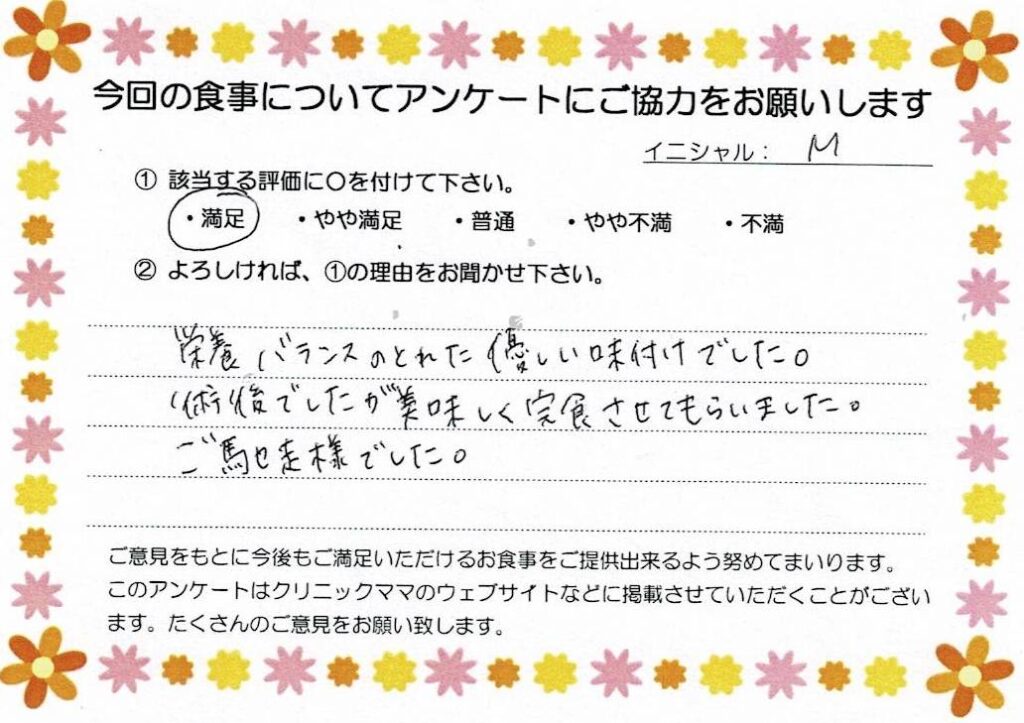 今回の食事についてアンケートにご協力をお願いします
イニシャル： M
① 該当する評価に〇を付けて下さい。
・満足 ・やや満足 ・普通 ・やや不満 ・不満
② よろしければ、①の理由をお聞かせ下さい。
栄養バランスのとれた優しい味付けでした。
術後でしたが美味しく完食させてもらいました。
ご馳走様でした。
ご意見をもとに今後もご満足いただけるお食事をご提供出来るよう努めてまいります。
このアンケートはクリニックママのウェブサイトなどに掲載させていただくことがござい
ます。たくさんのご意見をお願い致します。